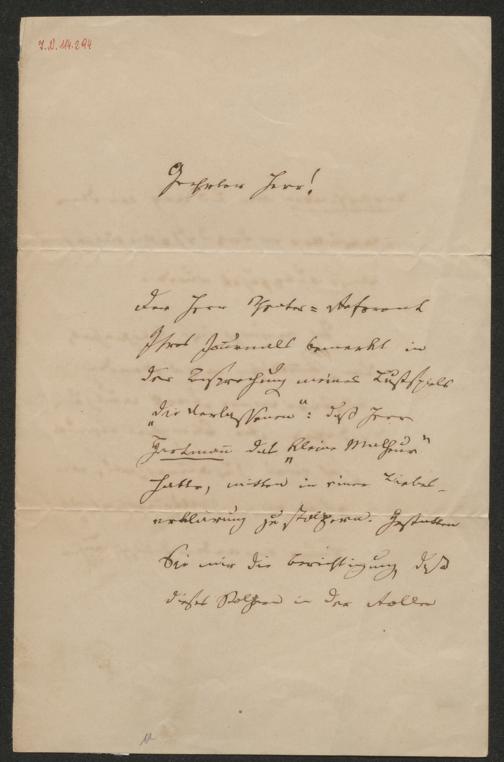 J.N. 114.294
Geehrter Herr!
Der Herr Theater= Referent
Ihres Journals bemerkt in
der Besprechung meines Lustspiels
„die Verlassenen“: daß Herr
Hartmann das „kleine Malheur“
hatte, mitten in einer Liebes-
erklärung zu stolpern. Gestatten
Sie mir die Berichtigung, daß
dieses Stolpern in der Rolle